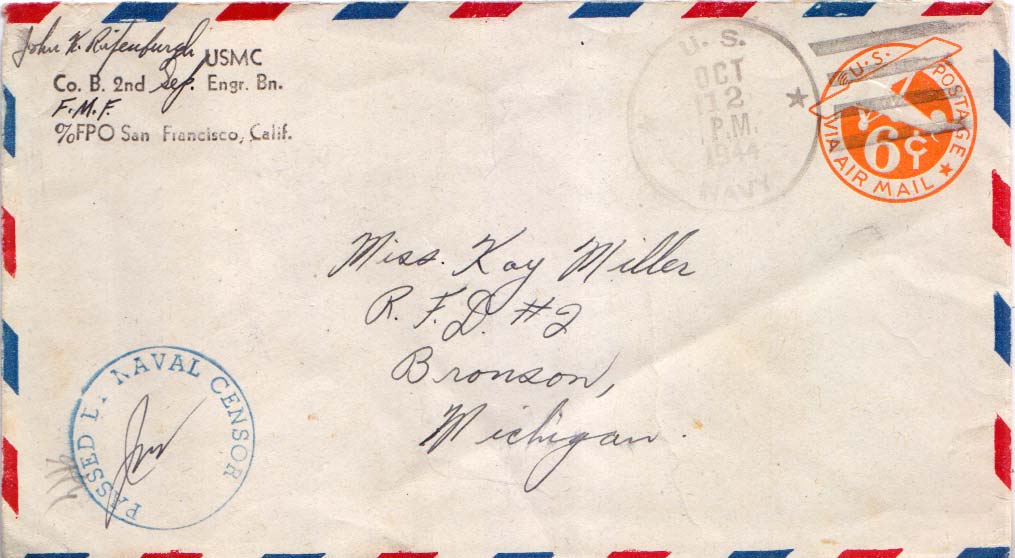 John K. Rifenburgh USMC
Co. B. 2nd Sep. Engr. Bn.
F.M.F.
℅FPO San Francisco, Calif.
U. S.
OCT
12
P.M.
1944
NAVY
U.S. POSTAGE
6¢
VIA AIR MAIL
Miss. Kay Miller
R. F. D. #2
Bronson,
Michigan.
PASSED BY NAVAL CENSOR